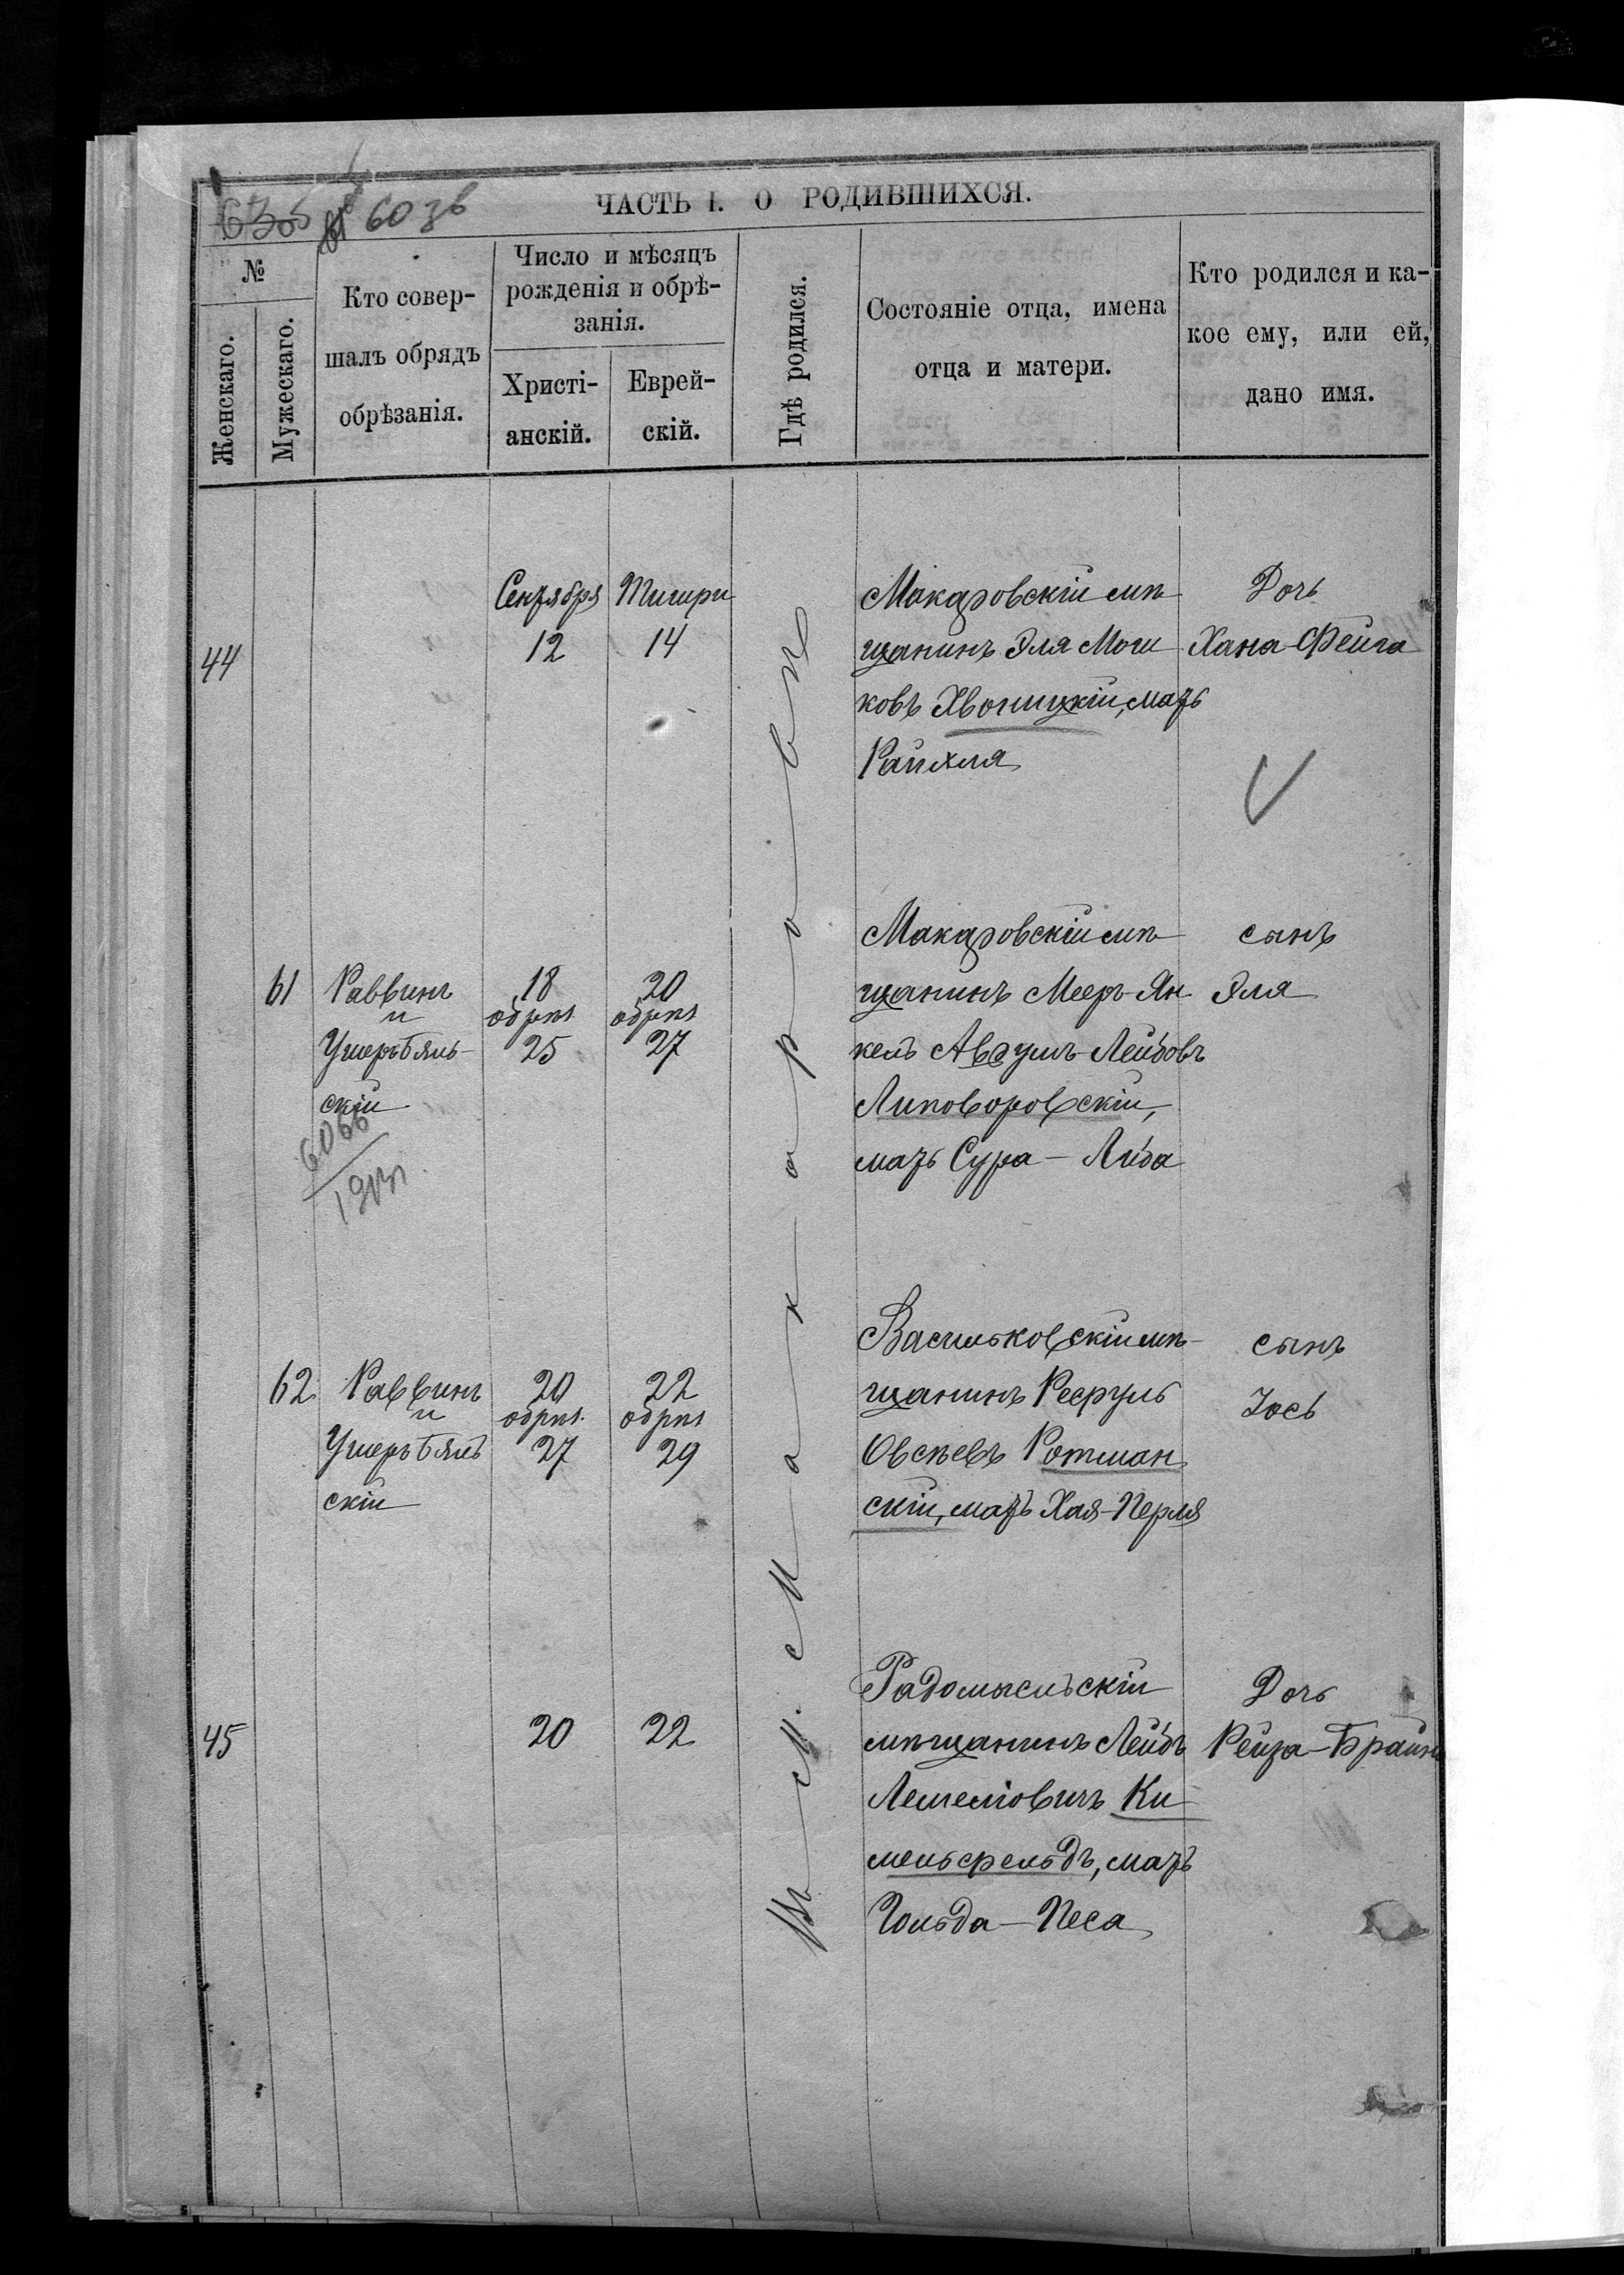 6036
ЧАСТЬ I. О РОДИВШИХСЯ.
№
Женскаго.
Мужескаго.
Кто совер-
шалъ обрядъ
обрѣзанія.
Число и мѣсяцъ
рожденія и обрѣ-
занія.
Христі-
анскій.
Еврей-
скій.
Гдѣ родился.
Состояніе отца, имена
отца и матери.
Кто родился и ка-
кое ему, или ей,
дано имя.
Въ м. Макаровѣ
44
Сентября
12
Тишри
14
Макаровскій мѣ
щанинъ Эля Мош
ковъ Хвоницкій, мать
Райхля
Дочь
Хана-Фейга
61
Раввинъ
и
Ушеръ Бяль-
скій
18
обрѣз.
25
20
обрѣз.
27
Макаровскій мѣ
щанинъ Мееръ-Ян
кель Авдумъ-Лейбовъ
Липоворовскій,
мать Сура-Либа
сынъ
Эля
6066
62
Раввинъ
и
Ушеръ Бяль
скій
20
обрѣз.
27
22
обрѣз.
29
Васильковскій мѣ-
щанинъ Рефуль
Овсѣевъ Ротман
скій, мать Хая-Перля
сынъ
Іось
45
20
22
Радомысльскій
мѣщанинъ Лейбъ
Лемеліовичъ Ки
мельфельдъ, мать
Гольда-Песа
Дочь
Рейза-Брайна